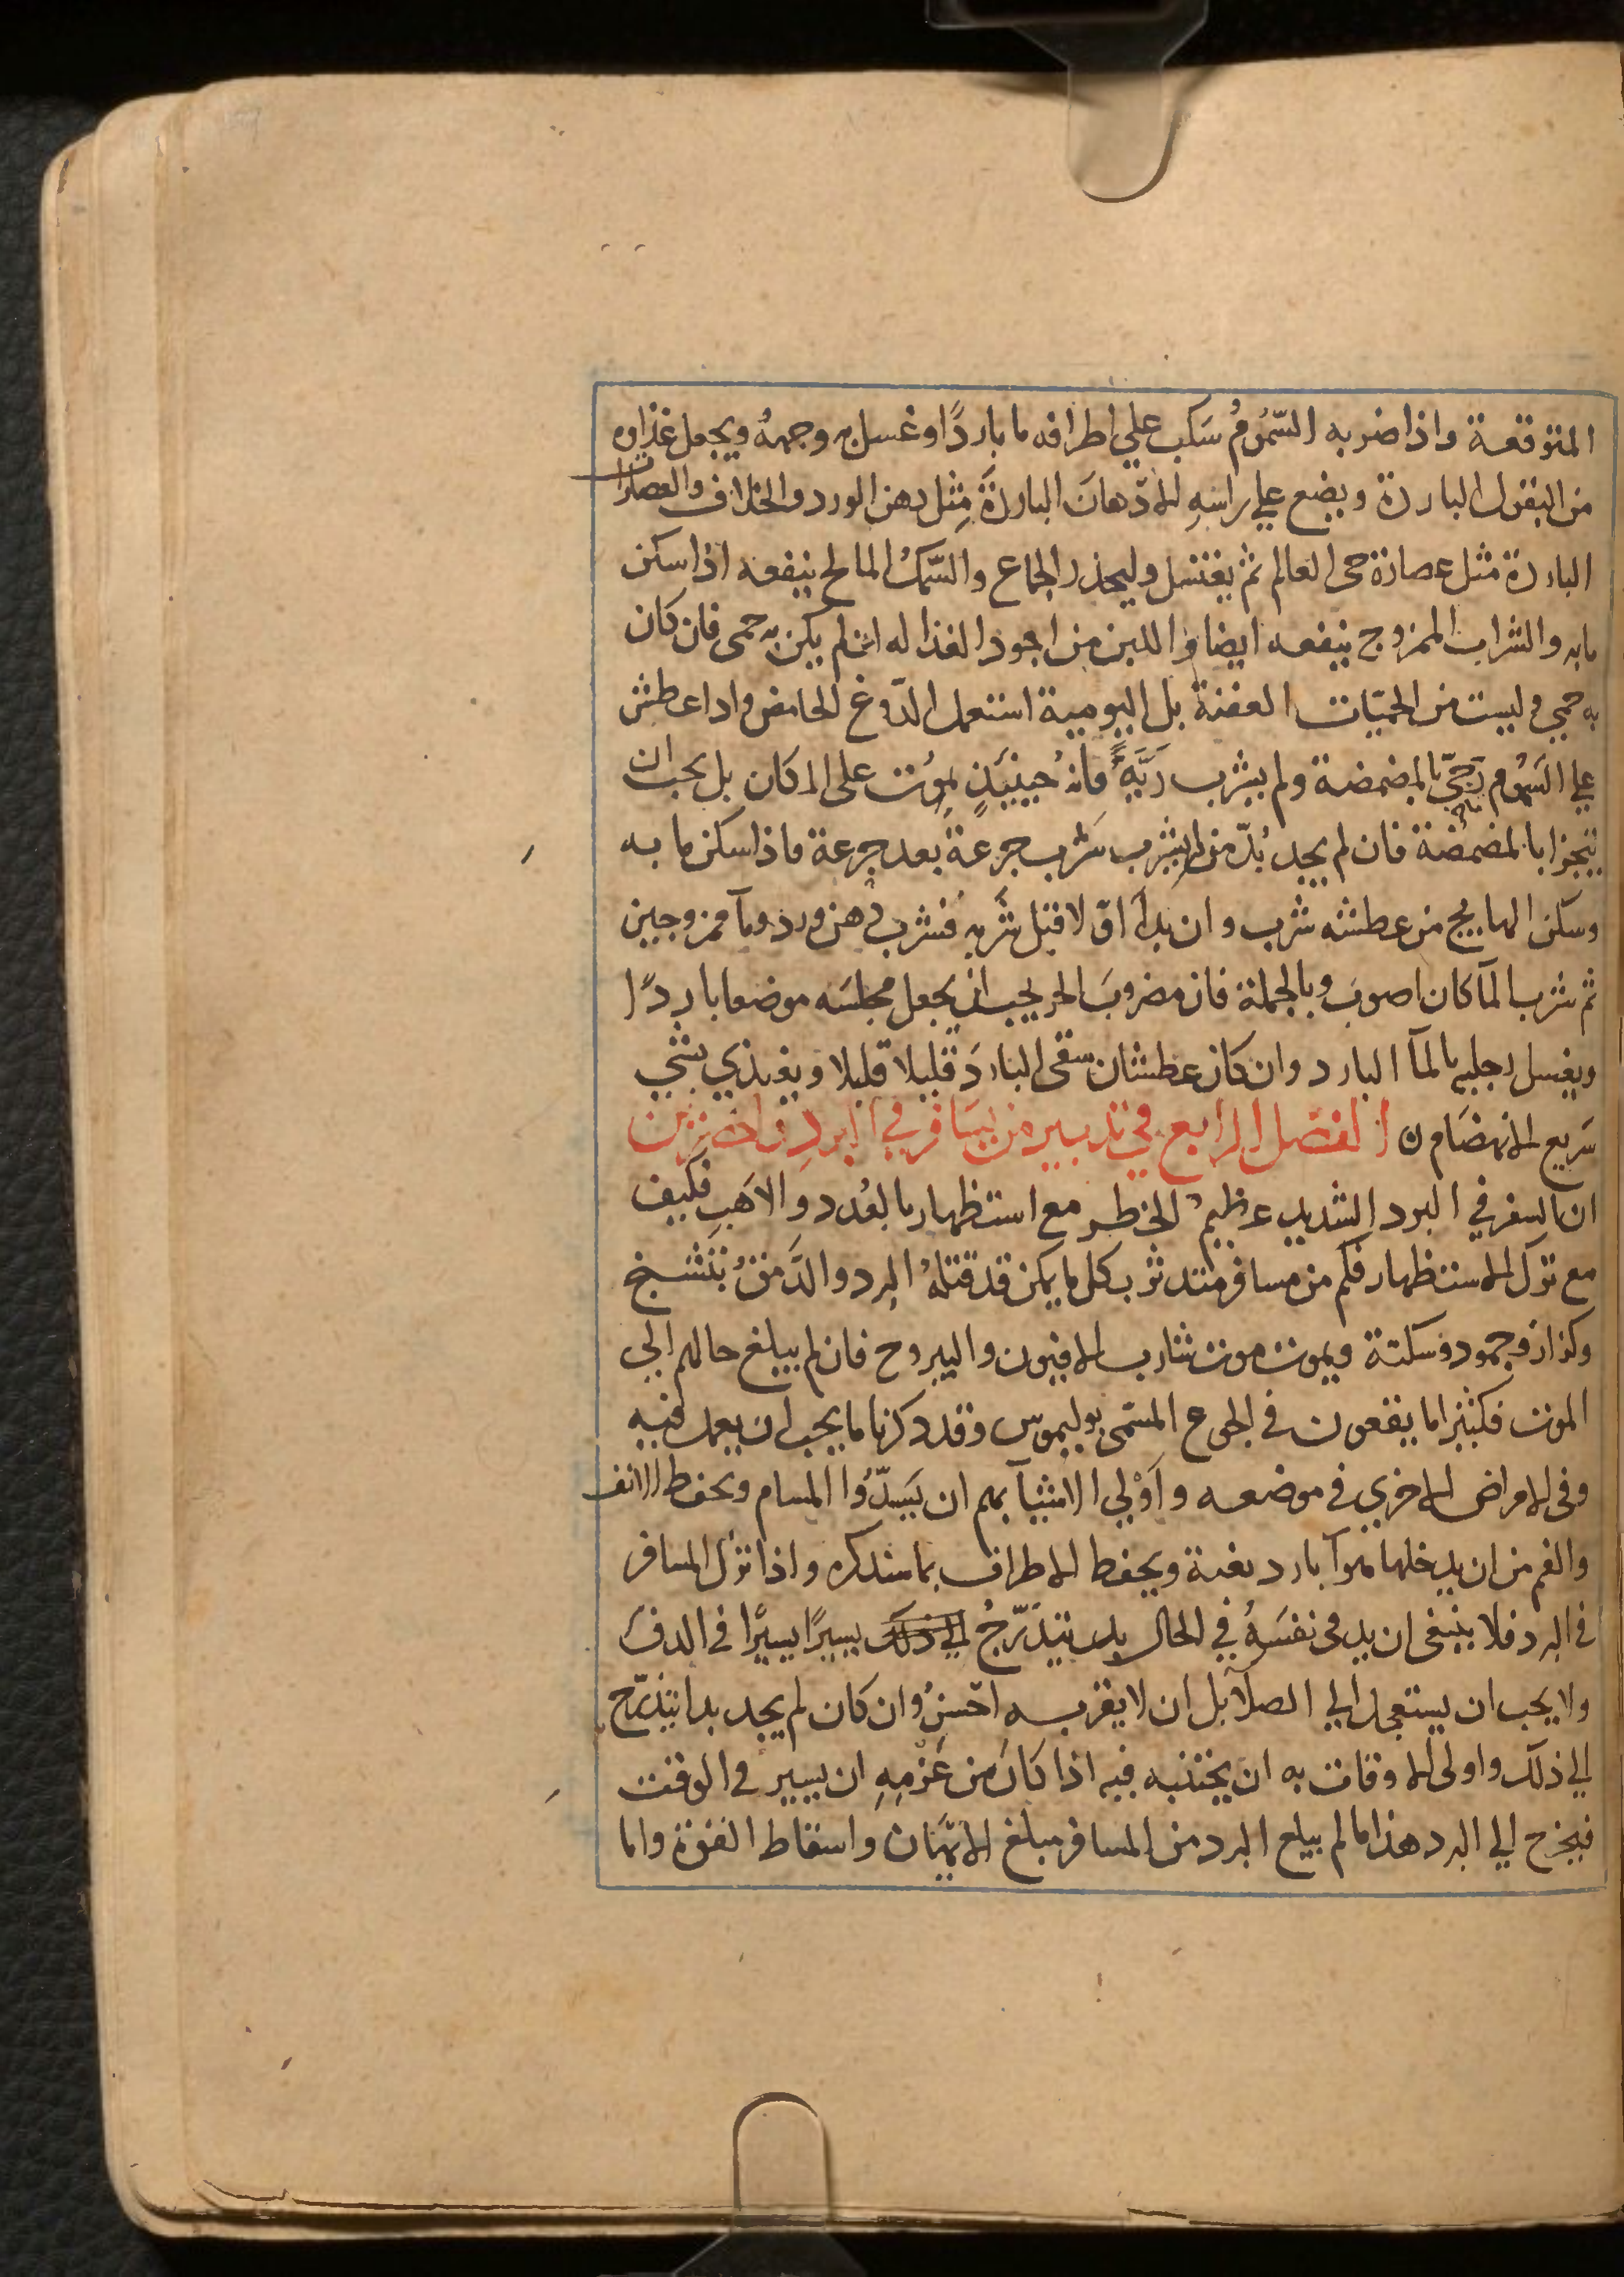 المتوقعة واذا ضربه السّمُومُ سَكب علي اطرافه ما باردًا وغسل به وجهه ويجعل غذاه
من البقول البارده ويضع علي راسِهِ الادّهانَ الباردَةَ مِثل دهن الورد والخلاف والعصارات
الباردة مثل عصارة حى العالم ثم يغتسل وليحذر الجماع والسّمكُ المالح ينفعه اذا سكن
ما به والشراب الممزوج ينفعه ايضا واللبن من اجود الغذا له ان لم يكن به حمى فان كان
به حمي وليست من الحمّيات العفنة بل اليومية استعمل الدّوغ الحامض واذا عطش
علي السَمُوم تجزّي بالمضمضة ولم يشرب رَيَّهُ فانه حِينَيذٍ يموُت على المكان بل يجب ان
يتجزا بالمضمضة فان لم يجد بُدّ من ان يشرب شرب جرعةً بعد جرعة فاذا سكن ما به
وسكن الهايج من عطشه شرب وان بدأ اوّلا قبل شَربه فشرب دهن ورد ومآ ممزوجين
ثم شرب المآ كان اصوبَ وبالجملة فان مضروبَ الحر يجب ان يجعل مجلسَه موضعا باردًا
ويغسل رجليه بالمآ البارد وان كان عطشان سقى البارَد قليلا قليلا ويغذي بشي
سَريع الانهضَام ن الفصَل الرابع في تدبير من يسَافر في البردِ
ان السفر في البرد الشديد عظيمُ الخطر مع استظهار بالعُدد والاهَبِ فكيف
مع ترك الاستظهار فكم من مسافر متدثر بكل ما يمكن قد قتلهُ البرد والدَّمَقُ بتشنج
وكزاز وجمود وسكتة ويموت موت شارب الافيون واليبروح فان لم يبلغ حالهم الي
الموت فكثيرا ما يقعون في الجوع المسّمى بوليموس وقد ذكرنا ما يجب ان يعمل فيه
وفى الامراض الاخري في موضعه وَاَوْلي الاشيآ بهم ان يَسدّوُا المسام ويحفظ الانف
والفم من ان يدخلها هوآ بارد بغتة ويحفظ الاطراف بما سنذكره واذا نزل المسافر
في البرد فلا ينبغى ان يدفى نفسَهُ في الحال بل يتدَرّجُ الي ذلك يسيرًا يسيرًا في الدف
ولا يجب ان يستعجل الي الصلآ بل ان لا يقربه احَسنُ وان كان لم يجد بدا يتدرّج
الي ذلك واولى الاوقات به ان يجتنبه فيه اذا كان من عَزْمِهِ ان يسير في الوقت
فيخرج الي البرد هذا ما لم يبلع البرد من المسافر مبلغ الايهَان واسقاط القوة واما